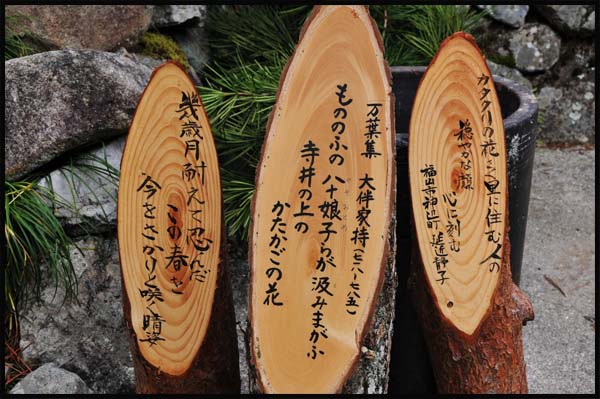 カタクリの花と里に住む人の
穏やかな顔
心に刻む
福山市神辺町 延近静子
万葉集 大伴家持(七一八-七八五)
もののふの 八十娘子らが 汲みまがふ
寺井の上の
かたかごの花
幾歳月耐えて忍んだ
この春を
今をさかりと咲く晴姿